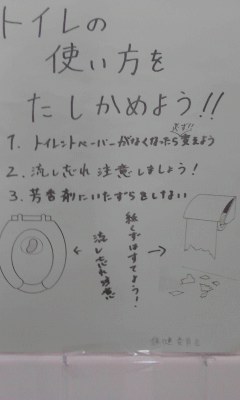 トイレの
使い方を
たしかめよう!!
必ず!!
1. トイレットペーパーがなくなったら変えよう
2. 流し忘れ注意しましょう!
3. 芳香剤にいたずらをしない
紙くずはすてよう!
流し忘れ注意
保健委員会